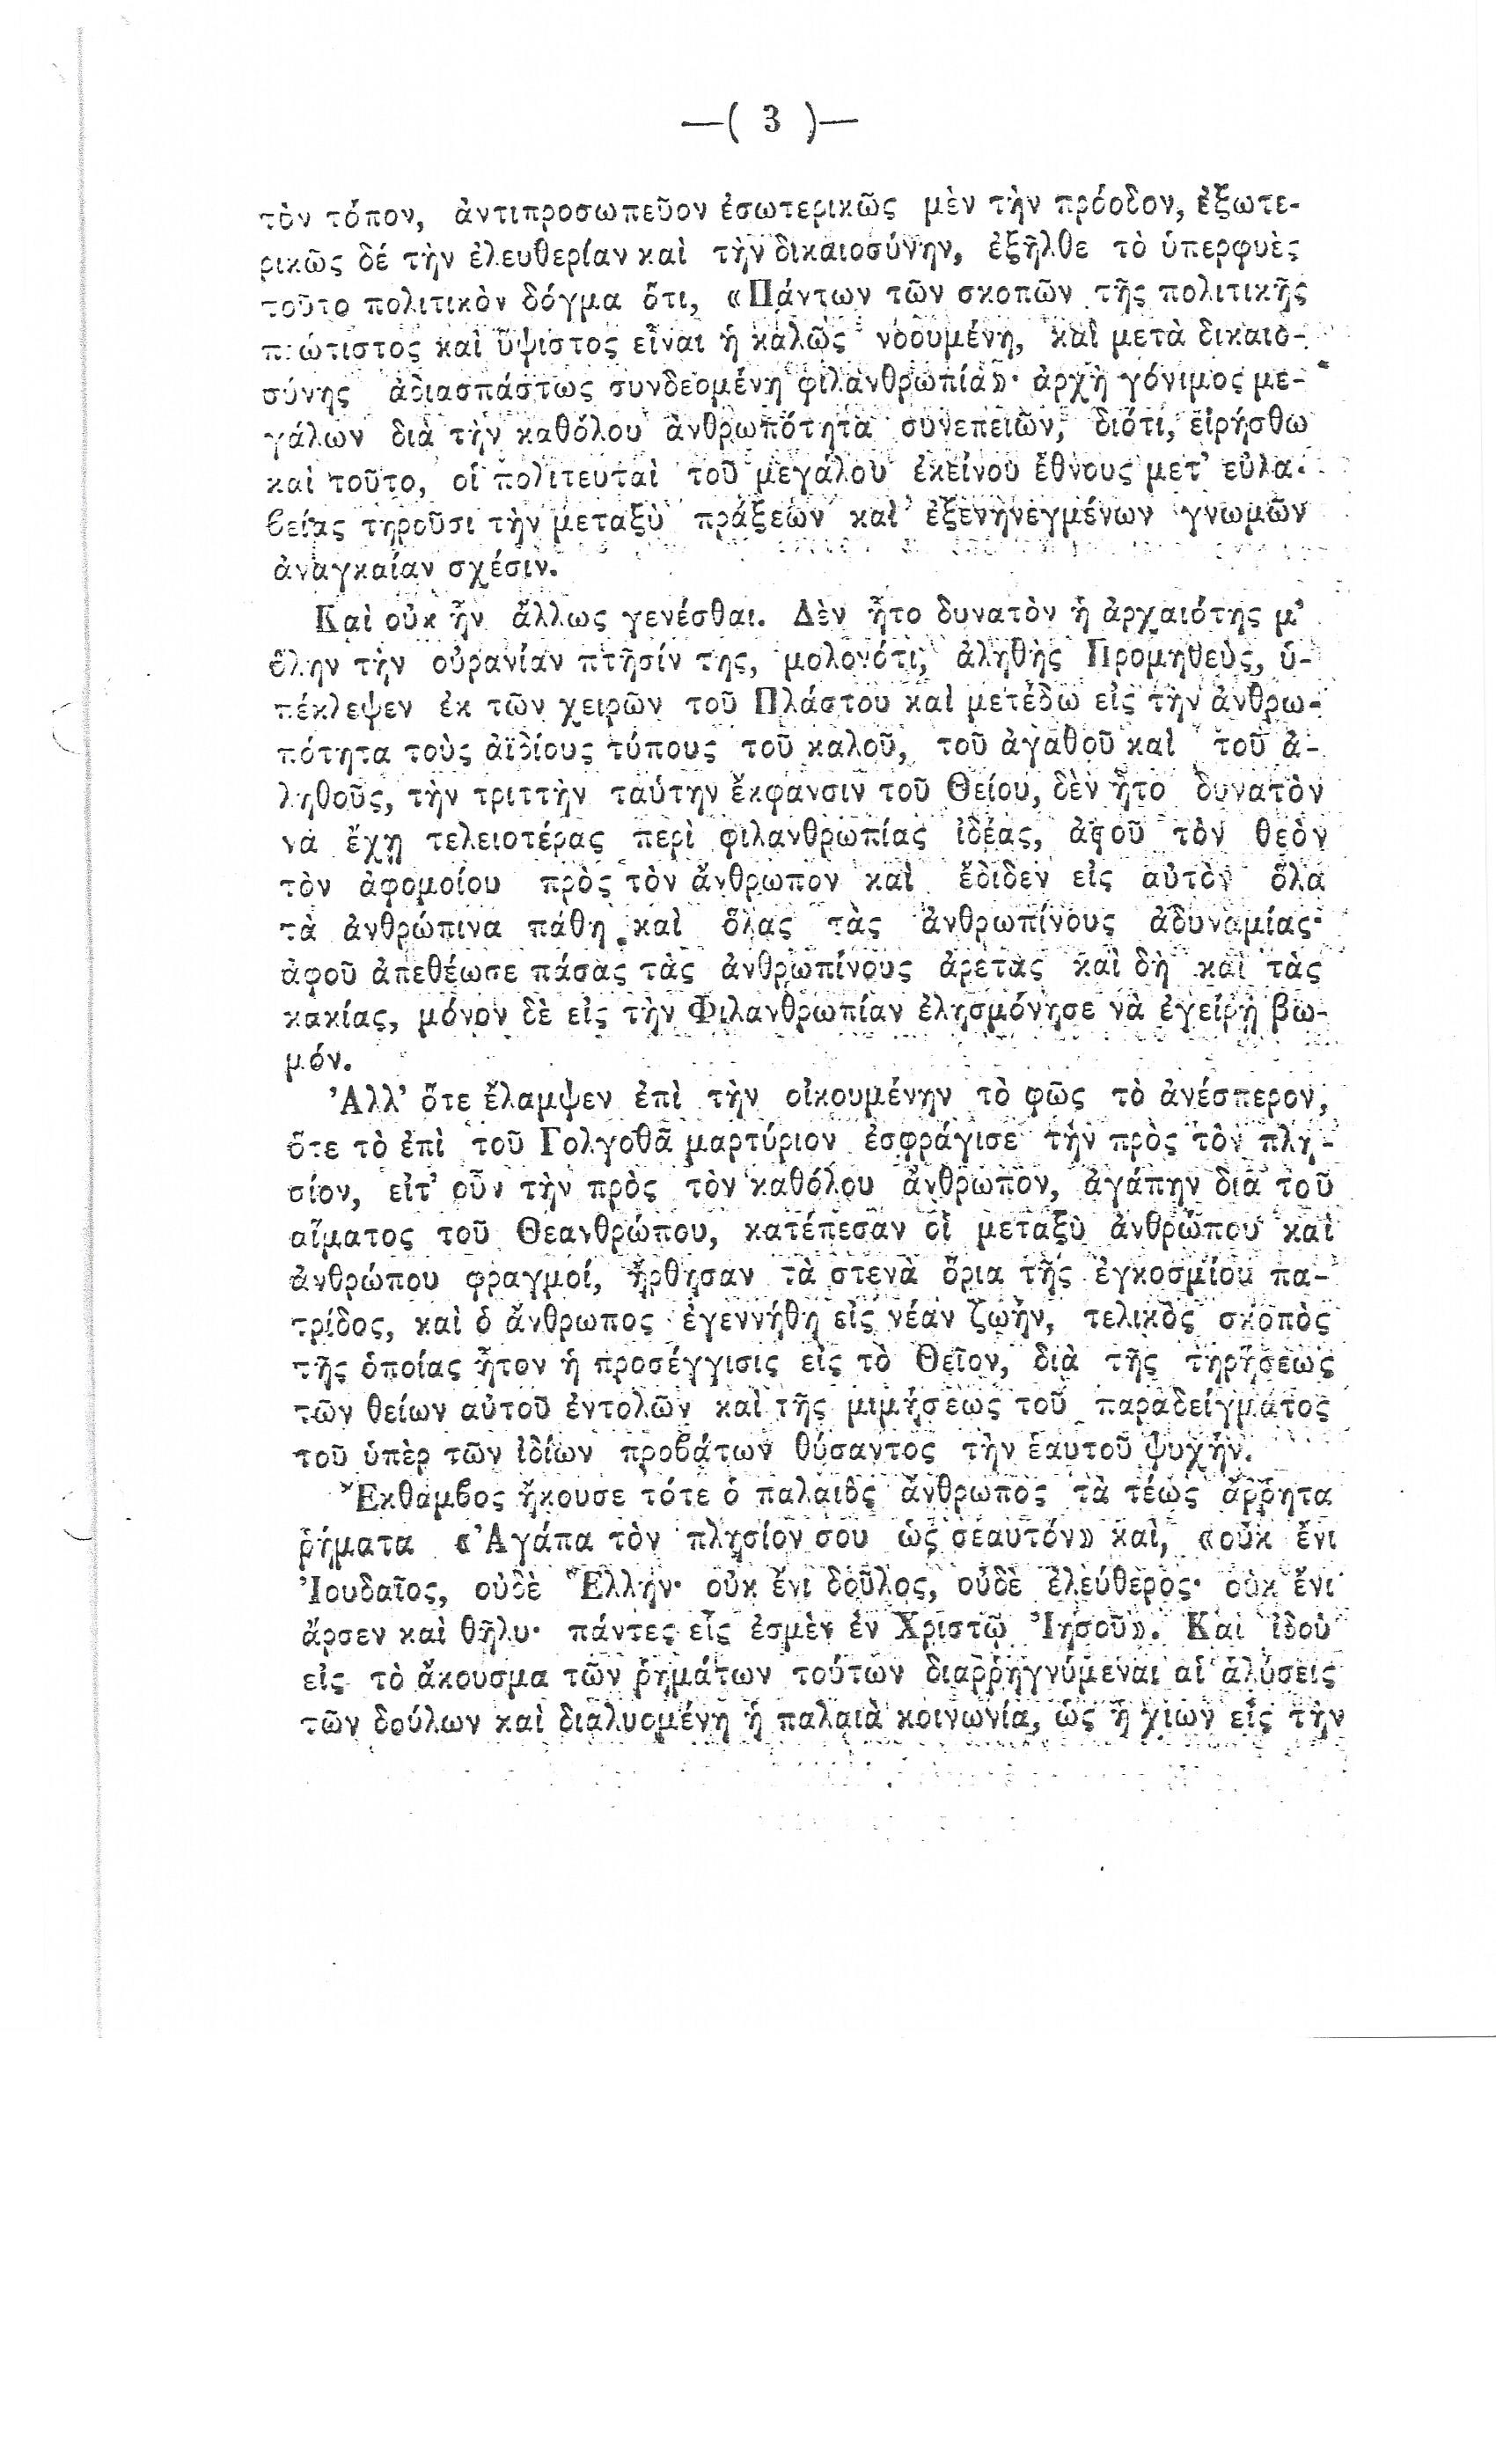 —( 3 )—
τὸν τόπον, ἀντιπροσωπεῦον ἐσωτερικῶς μὲν τὴν πρόοδον, ἐξωτε-
ρικῶς δέ τὴν ἐλευθερίαν καὶ τὴν δικαιοσύνην, ἐξῆλθε τὸ ὑπερφυὲς
τοῦτο πολιτικὸν δόγμα ὅτι, «Πάντων τῶν σκοπῶν τῆς πολιτικῆς
πρώτιστος καὶ ὕψιστος εἶναι ἡ καλῶς νοουμένη, καὶ μετὰ δικαιο-
σύνης ἀδιασπάστως συνδεομένη φιλανθρωπία»· ἀρχὴ γόνιμος με-
γάλων διὰ τὴν καθόλου ἀνθρωπότητα συνεπειῶν, διότι, εἰρήσθω
καὶ τοῦτο, οἱ πολιτευταὶ τοῦ μεγάλου ἐκείνου ἔθνους μετ’ εὐλα-
βείας τηροῦσι τὴν μεταξὺ πράξεων καὶ ἐξενηνεγμένων γνωμῶν
ἀναγκαίαν σχέσιν.
Καὶ οὐκ ἦν ἄλλως γενέσθαι. Δὲν ἦτο δυνατὸν ἡ ἀρχαιότης μ’
ὅλην τὴν οὐρανίαν πτῆσίν της, μολονότι, ἀληθὴς Προμηθεὺς, ὑ-
πέκλεψεν ἐκ τῶν χειρῶν τοῦ Πλάστου καὶ μετέδω εἰς τὴν ἀνθρω-
πότητα τοὺς ἀϊδίους τύπους τοῦ καλοῦ, τοῦ ἀγαθοῦ καὶ τοῦ ἀ-
ληθοῦς, τὴν τριττὴν ταύτην ἔκφανσιν τοῦ Θείου, δὲν ἦτο δυνατὸν
νὰ ἔχῃ τελειοτέρας περὶ φιλανθρωπίας ἰδέας, ἀφοῦ τὸν θεὸν
τὸν ἀφομοίου πρὸς τὸν ἄνθρωπον καὶ ἔδιδεν εἰς αὐτὸν ὅλα
τὰ ἀνθρώπινα πάθη καὶ ὅλας τὰς ἀνθρωπίνους ἀδυναμίας·
ἀφοῦ ἀπεθέωσε πάσας τὰς ἀνθρωπίνους ἀρετὰς καὶ δὴ καὶ τὰς
κακίας, μόνον δὲ εἰς τὴν Φιλανθρωπίαν ἐλησμόνησε νὰ ἐγείρῃ βω-
μόν.
Ἀλλ’ ὅτε ἔλαμψεν ἐπὶ τὴν οἰκουμένην τὸ φῶς τὸ ἀνέσπερον,
ὅτε τὸ ἐπὶ τοῦ Γολγοθᾶ μαρτύριον ἐσφράγισε τὴν πρὸς τὸν πλη-
σίον, εἴτ’ οὖν τὴν πρὸς τὸν καθόλου ἄνθρωπον, ἀγάπην διὰ τοῦ
αἵματος τοῦ Θεανθρώπου, κατέπεσαν οἱ μεταξὺ ἀνθρώπου καὶ
ἀνθρώπου φραγμοί, ἤρθησαν τὰ στενὰ ὅρια τῆς ἐγκοσμίου πα-
τρίδος, καὶ ὁ ἄνθρωπος ἐγεννήθη εἰς νέαν ζωὴν, τελικὸς σκοπὸς
τῆς ὁποίας ἦτον ἡ προσέγγισις εἰς τὸ Θεῖον, διὰ τῆς τηρήσεως
τῶν θείων αὐτοῦ ἐντολῶν καὶ τῆς μιμήσεως τοῦ παραδείγματος
τοῦ ὑπὲρ τῶν ἰδίων προβάτων θύσαντος τὴν ἑαυτοῦ ψυχήν.
Ἔκθαμβος ἤκουσε τότε ὁ παλαιὸς ἄνθρωπος τὰ τέως ἄῤῥητα
ῥήματα «Ἀγάπα τὸν πλησίον σου ὡς σεαυτόν» καὶ, «οὐκ ἔνι
Ἰουδαῖος, οὐδὲ Ἕλλην· οὐκ ἔνι δοῦλος, οὐδὲ ἐλεύθερος· οὐκ ἔνι
ἄρσεν καὶ θῆλυ· πάντες εἷς ἐσμὲν ἐν Χριστῷ Ἰησοῦ». Καὶ ἰδοὺ
εἰς τὸ ἄκουσμα τῶν ῥημάτων τούτων διαῤῥηγνύμεναι αἱ ἁλύσεις
τῶν δούλων καὶ διαλυομένη ἡ παλαιὰ κοινωνία, ὡς ἡ χιὼν εἰς τὴν